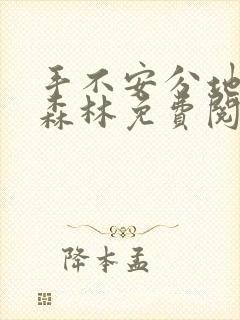 手不安分地
森林免费阅
降本孟